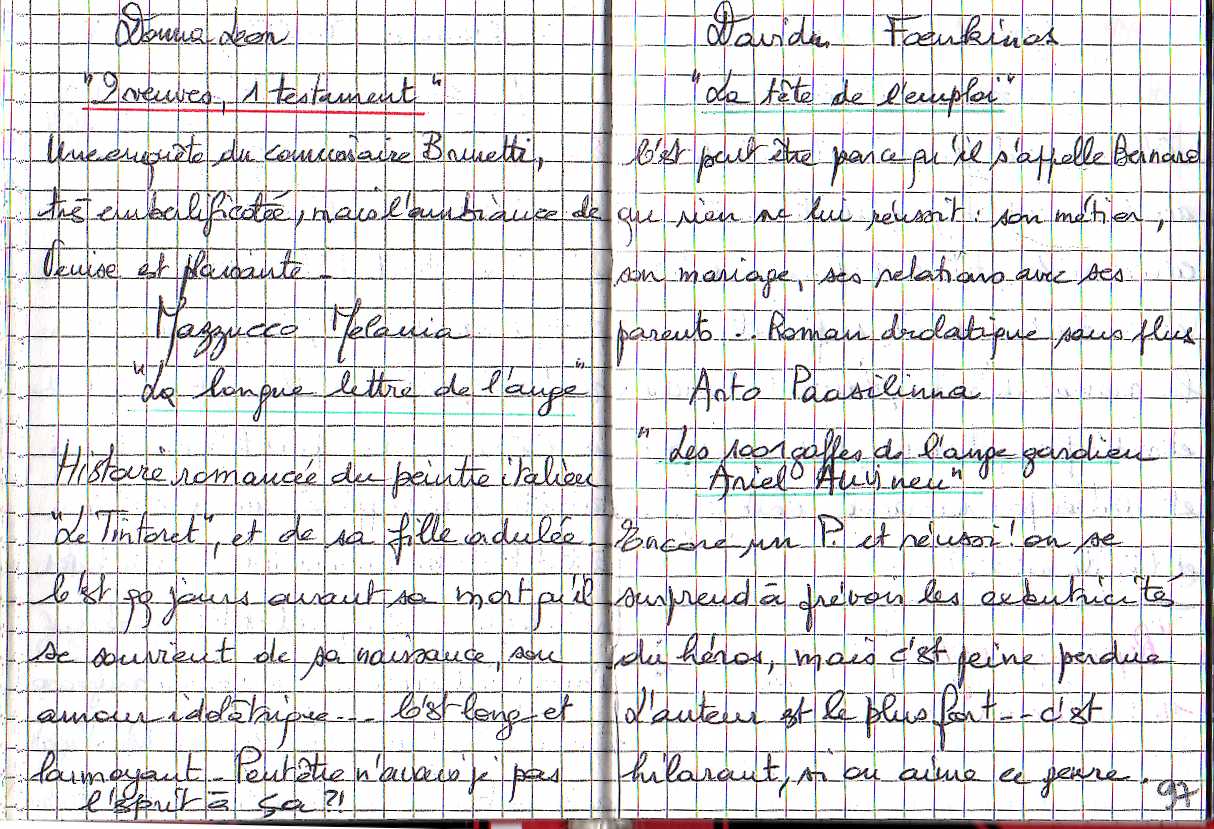 Donna Leon
"2 veuves, 1 testament"
Une enquête du commissaire Brunetti,
très emberlificotée, mais l'ambiance de
Venise est plaisante -
Mazzucco Melania
"La longue lettre de l'ange"
Histoire romancée du peintre italien
"Le Tintoret", et de sa fille adulée -
C'est qq jours avant sa mort qu'il
se souvient de sa naissance, son
amour idolâtrique --- C'est long et
larmoyant - Peut être n'avais je pas
l'esprit à ça ?!
David Foenkinos
"La tête de l'emploi"
C'est peut être parce qu'il s'appelle Bernard
que rien ne lui réussit : son métier,
son mariage, ses relations avec ses
parents ... Roman drolatique sans plus
Arto Paasilinna
"Les 1001 gaffes de l'ange gardien
Ariel Auvinen"
Encore un P. et réussi ! on se
surprend à prévoir les excentricités
du héros, mais c'est peine perdue
L'auteur est le plus fort -- c'est
hilarant, si on aime ce genre.
97